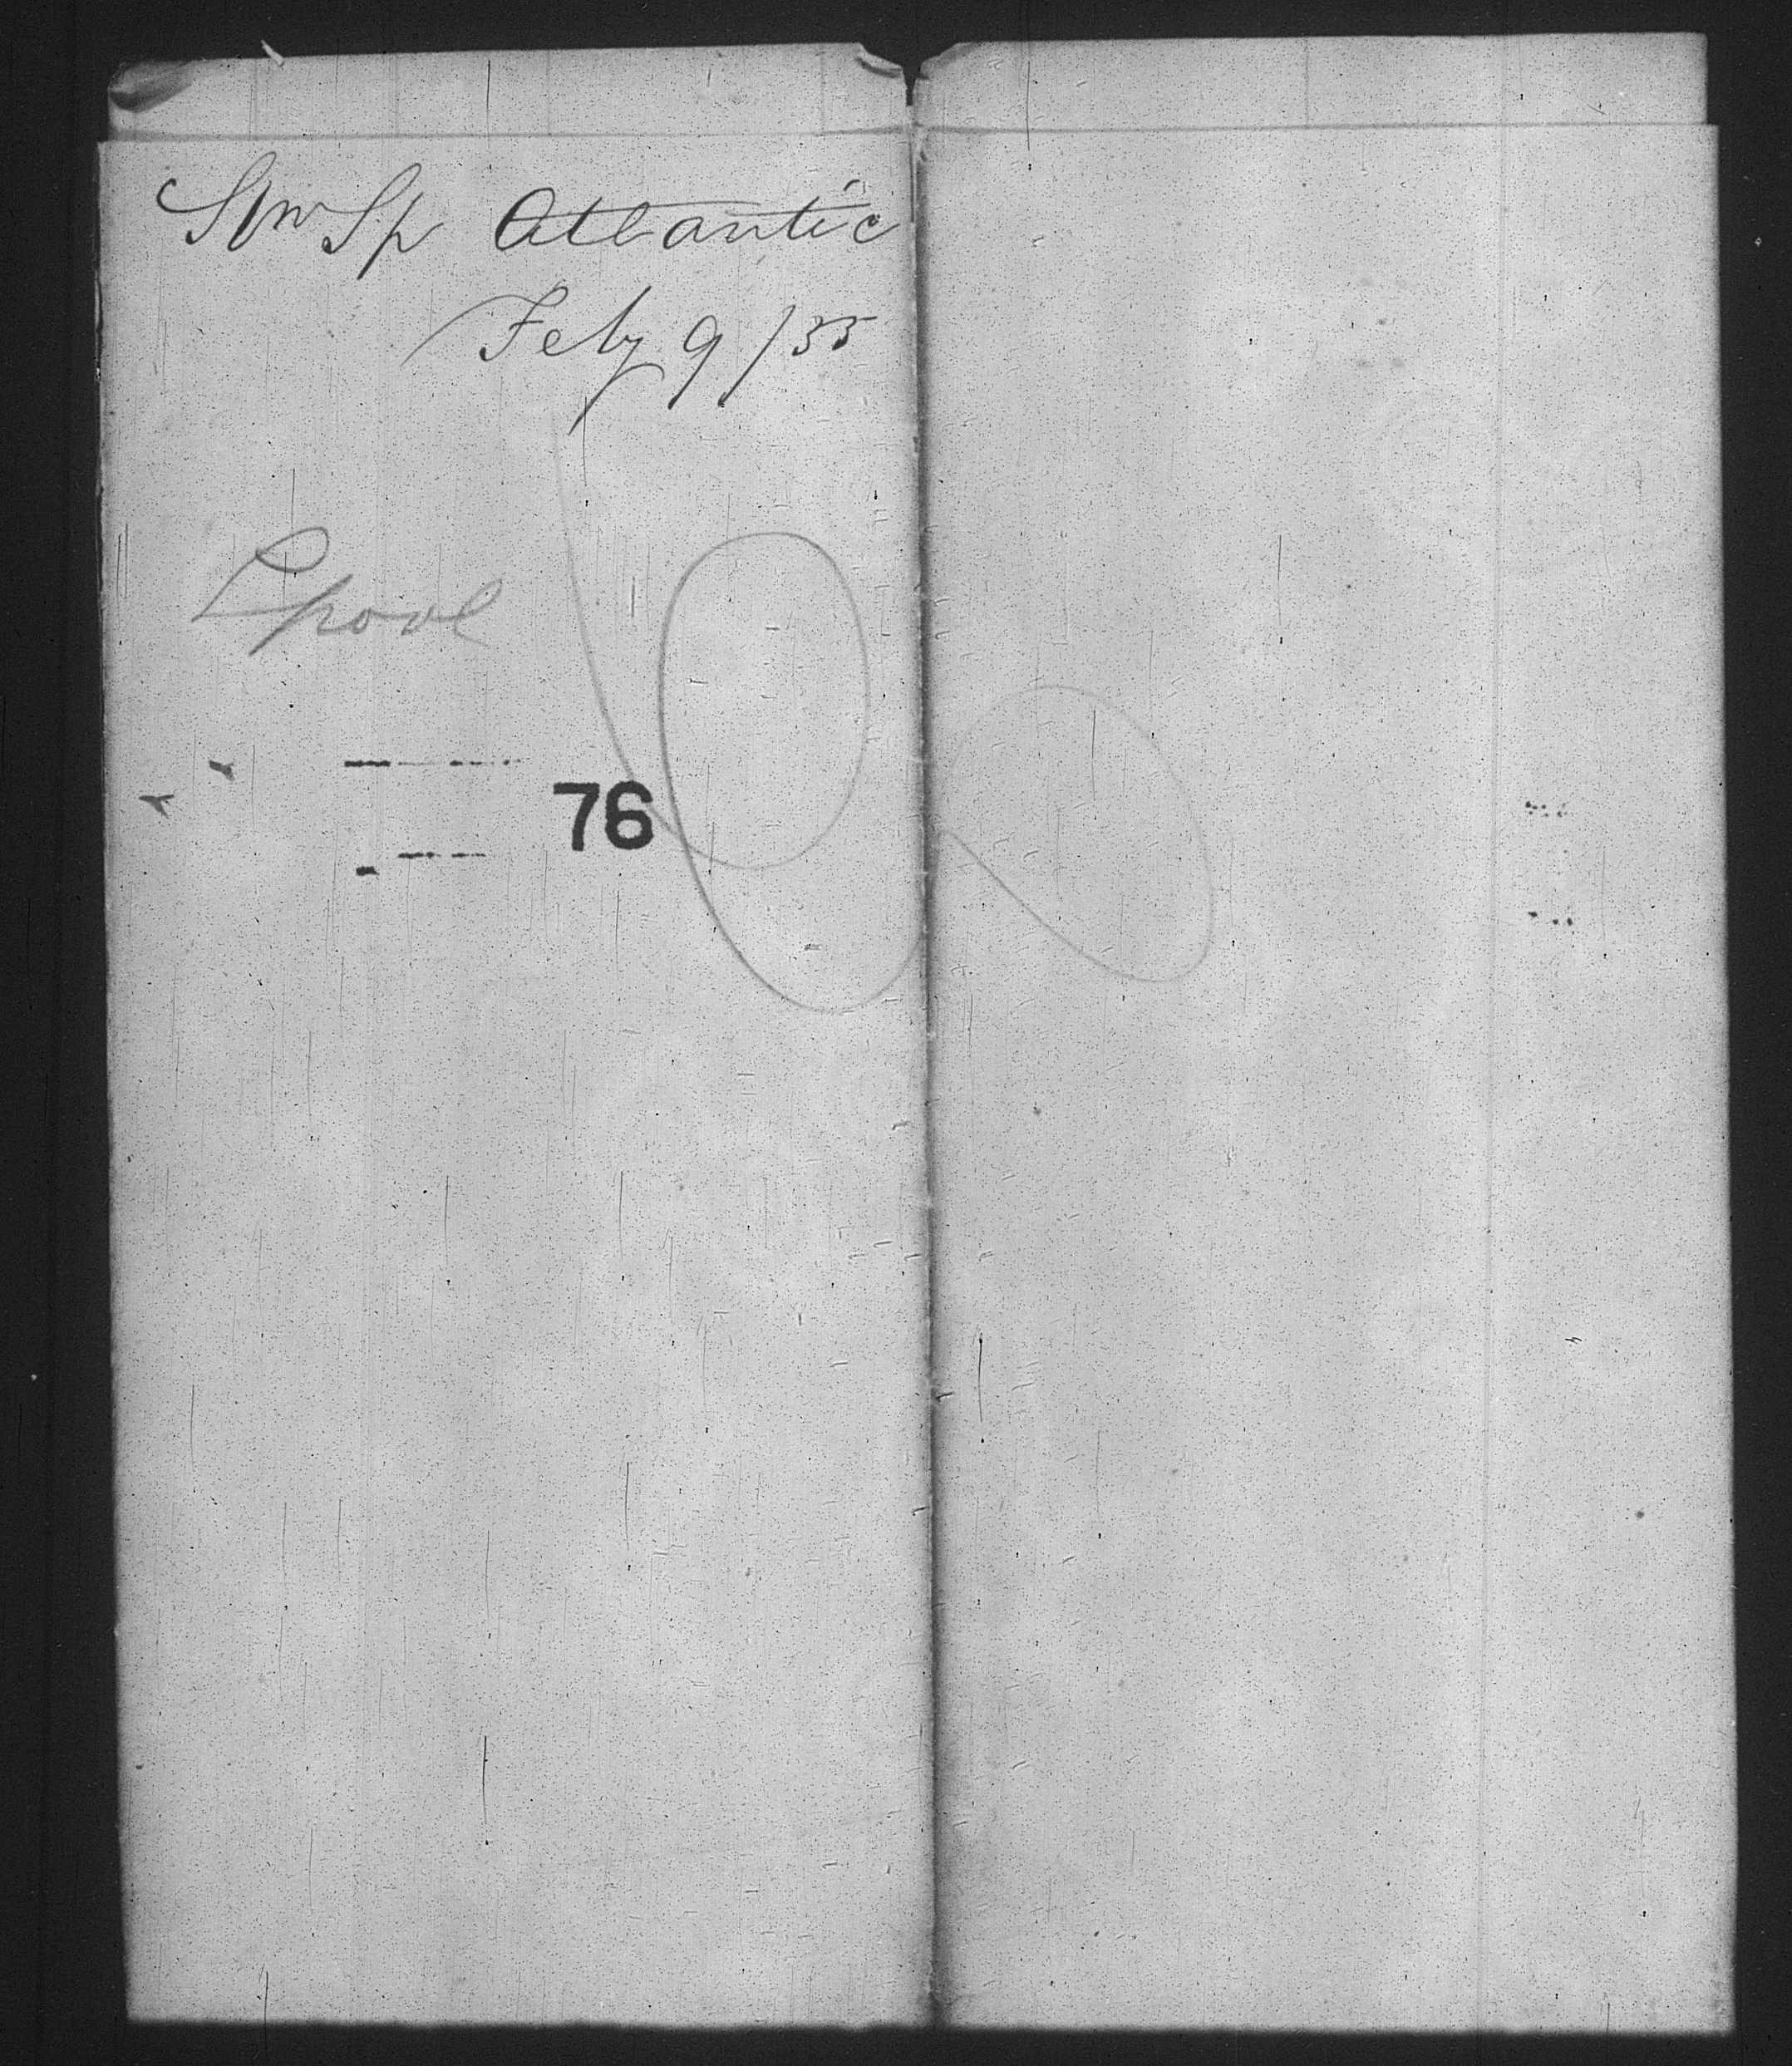 StmSp Atlantic
Feby 9/55
Lpool
76